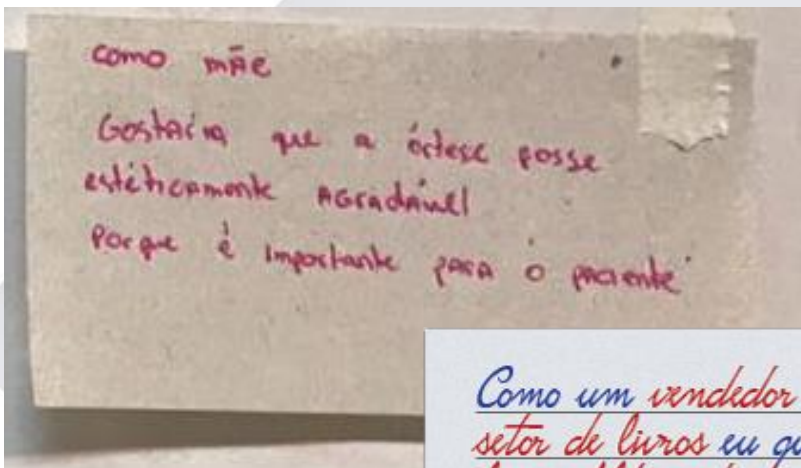 como mãe
Gostaria que a órtese fosse
estéticamente AGradável
Porque é importante para o paciente
Como um vendedor
setor de livros eu